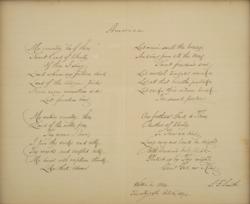 America
My country, 'tis of thee,
Sweet land of liberty,
Of thee I sing;
Land where my fathers died,
Land of the pilgrims' pride,
From every mountain side
Let freedom ring.
My native country, thee,
Land of the noble free,
Thy name I love;
I love thy rocks and rills,
Thy woods and templed hills;
My heart with rapture thrills
Like that above.
Let music swell the breeze,
And ring from all the trees
Sweet freedom's song;
Let mortal tongues awake;
Let all that breathe partake;
Let rocks their silence break,
The sound prolong.
Our fathers' God, to Thee,
Author of liberty,
To Thee we sing;
Long may our land be bright
With freedom's holy light;
Protect us by Thy might,
Great God, our King.
Written in
S. F. Smith